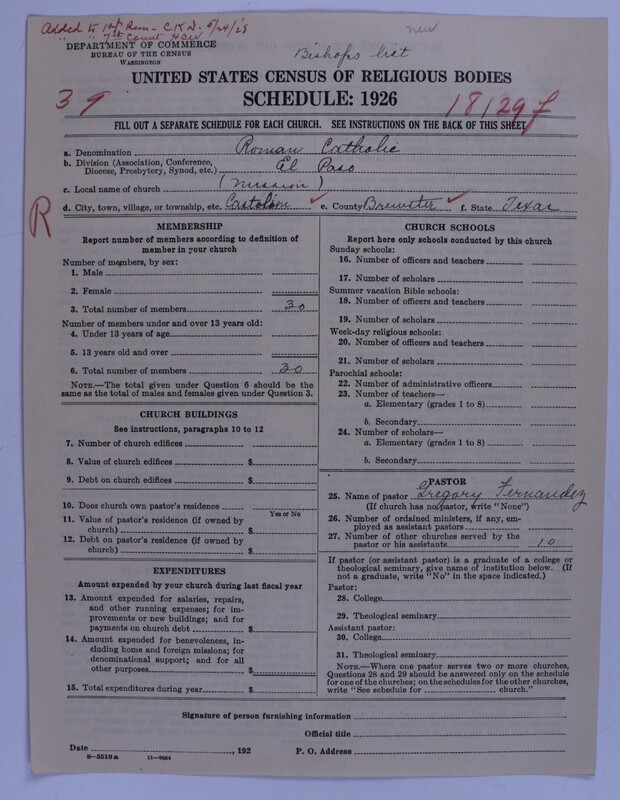 Added to 1st Run - C.K.D. 5/24/28
" " 7th Count HSW
new
DEPARTMENT OF COMMERCE
BUREAU OF THE CENSUS
WASHINGTON
Bishops list
UNITED STATES CENSUS OF RELIGIOUS BODIES
SCHEDULE: 1926
39
18129f
FILL OUT A SEPARATE SCHEDULE FOR EACH CHURCH. SEE INSTRUCTIONS ON THE BACK OF THIS SHEET
a. Denomination Roman Catholic
b. Division (Association, Conference, Diocese, Presbytery, Synod, etc.) El Paso
c. Local name of church (Mission)
d. City, town, village, or township, etc. Castolon e. County Brewster f. State Texas
R
MEMBERSHIP
Report number of members according to definition of
member in your church
Number of members, by sex:
1. Male
2. Female
3. Total number of members 30
Number of members under and over 13 years old:
4. Under 13 years of age
5. 13 years old and over
6. Total number of members 30
NOTE.—The total given under Question 6 should be
same as the total of males and females given under Question 3.
CHURCH BUILDINGS
See instructions, paragraphs 10 to 12
7. Number of church edifices
8. Value of church edifices $
9. Debt on church edifices $
10. Does church own pastor's residence
Yes or No
11. Value of pastor's residence (if owned by
church) $
12. Debt on pastor's residence (if owned by
church) $
EXPENDITURES
Amount expended by your church during last fiscal year
13. Amount expended for salaries, repairs,
and other running expenses; for im-
provements or new buildings; and for
payments on church debt $
14. Amount expended for benevolences, in-
cluding home and foreign missions; for
denominational support; and for all
other purposes $
15. Total expenditures during year $
CHURCH SCHOOLS
Report here only schools conducted by this church
Sunday schools:
16. Number of officers and teachers
17. Number of scholars
Summer vacation Bible schools:
18. Number of officers and teachers
19. Number of scholars
Week-day religious schools:
20. Number of officers and teachers
21. Number of scholars
Parochial schools:
22. Number of administrative officers
23. Number of teachers—
a. Elementary (grades 1 to 8)
b. Secondary
24. Number of scholars—
a. Elementary (grades 1 to 8)
b. Secondary
PASTOR
25. Name of pastor Gregory Fernandez
(If church has no pastor, write "None")
26. Number of ordained ministers, if any, em-
ployed as assistant pastors
27. Number of other churches served by the
pastor or his assistants 10
If pastor (or assistant pastor) is a graduate of a college or
theological seminary, give name of institution below. (If
not a graduate, write "No" in the space indicated.)
Pastor:
28. College
29. Theological seminary
Assistant pastor:
30. College
31. Theological seminary
NOTE.—Where one pastor serves two or more churches,
Questions 28 and 29 should be answered only on the schedule
for one of the churches; on the schedules for the other churches,
write "See schedule for church."
Signature of person furnishing information
Official title
Date , 192 P. O. Address
8—5518a 11—9064